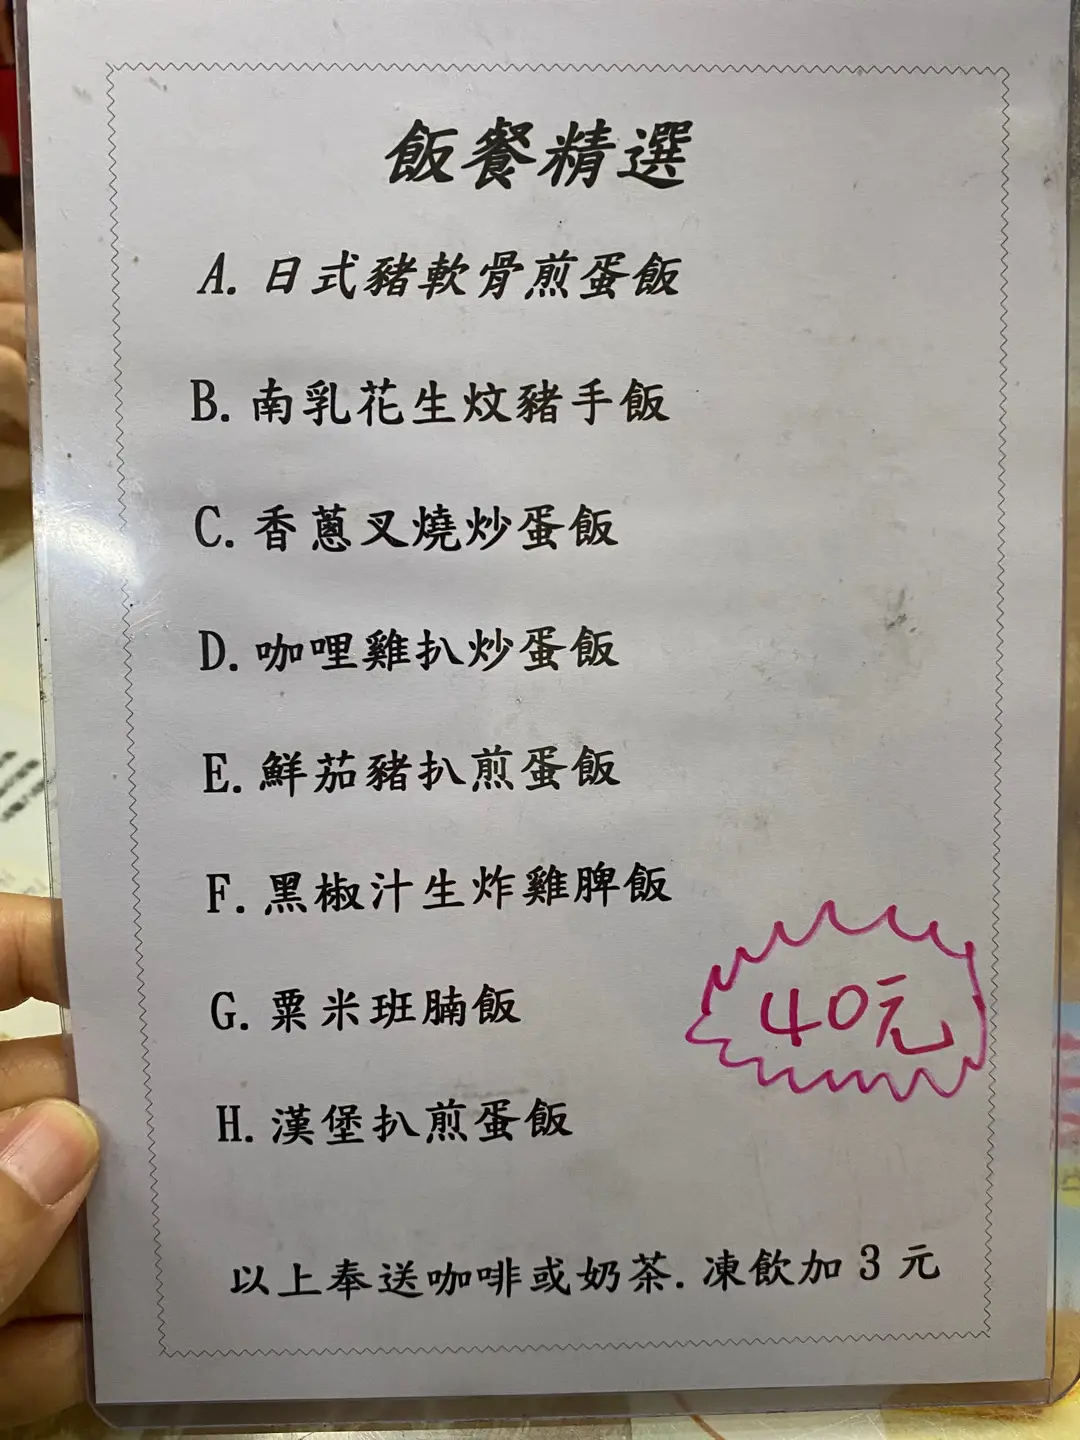 飯餐精選
A. 日式豬軟骨煎蛋飯
B. 南乳花生炆豬手飯
C. 香蔥叉燒炒蛋飯
D. 咖哩雞扒炒蛋飯
E. 鮮茄豬扒煎蛋飯
F. 黑椒汁生炸雞脾飯
G. 粟米班腩飯
40元
H. 漢堡扒煎蛋飯
以上奉送咖啡或奶茶. 凍飲加 3 元